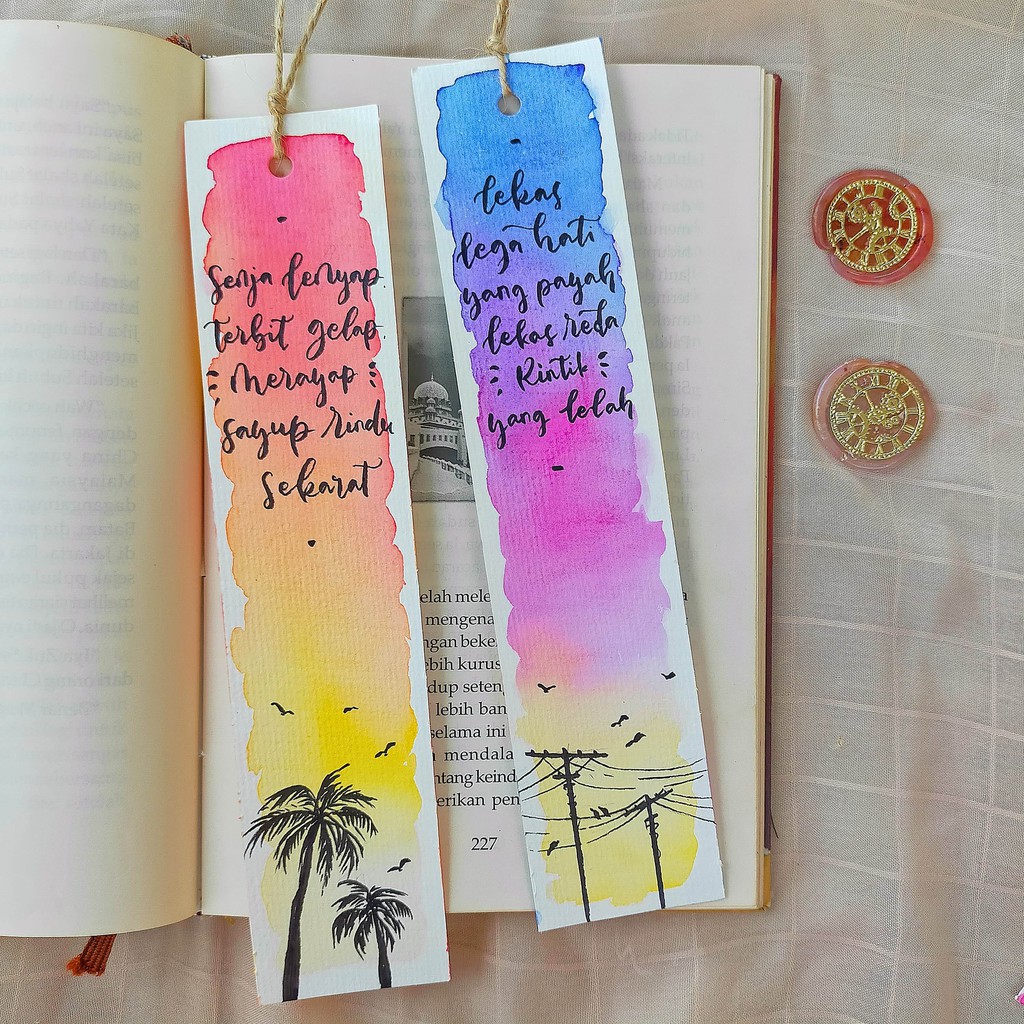 senja lenyap.
terbit gelap.
merayap
sayup rindu
sekarat
lekas
lega hati
yang payah
lekas reda
Rintik
yang lelah
elah mele
mengena
ngan beke
ebih kurus
dup seteng
lebih ban
selama ini
mendala
ntang keind
erikan pen
227